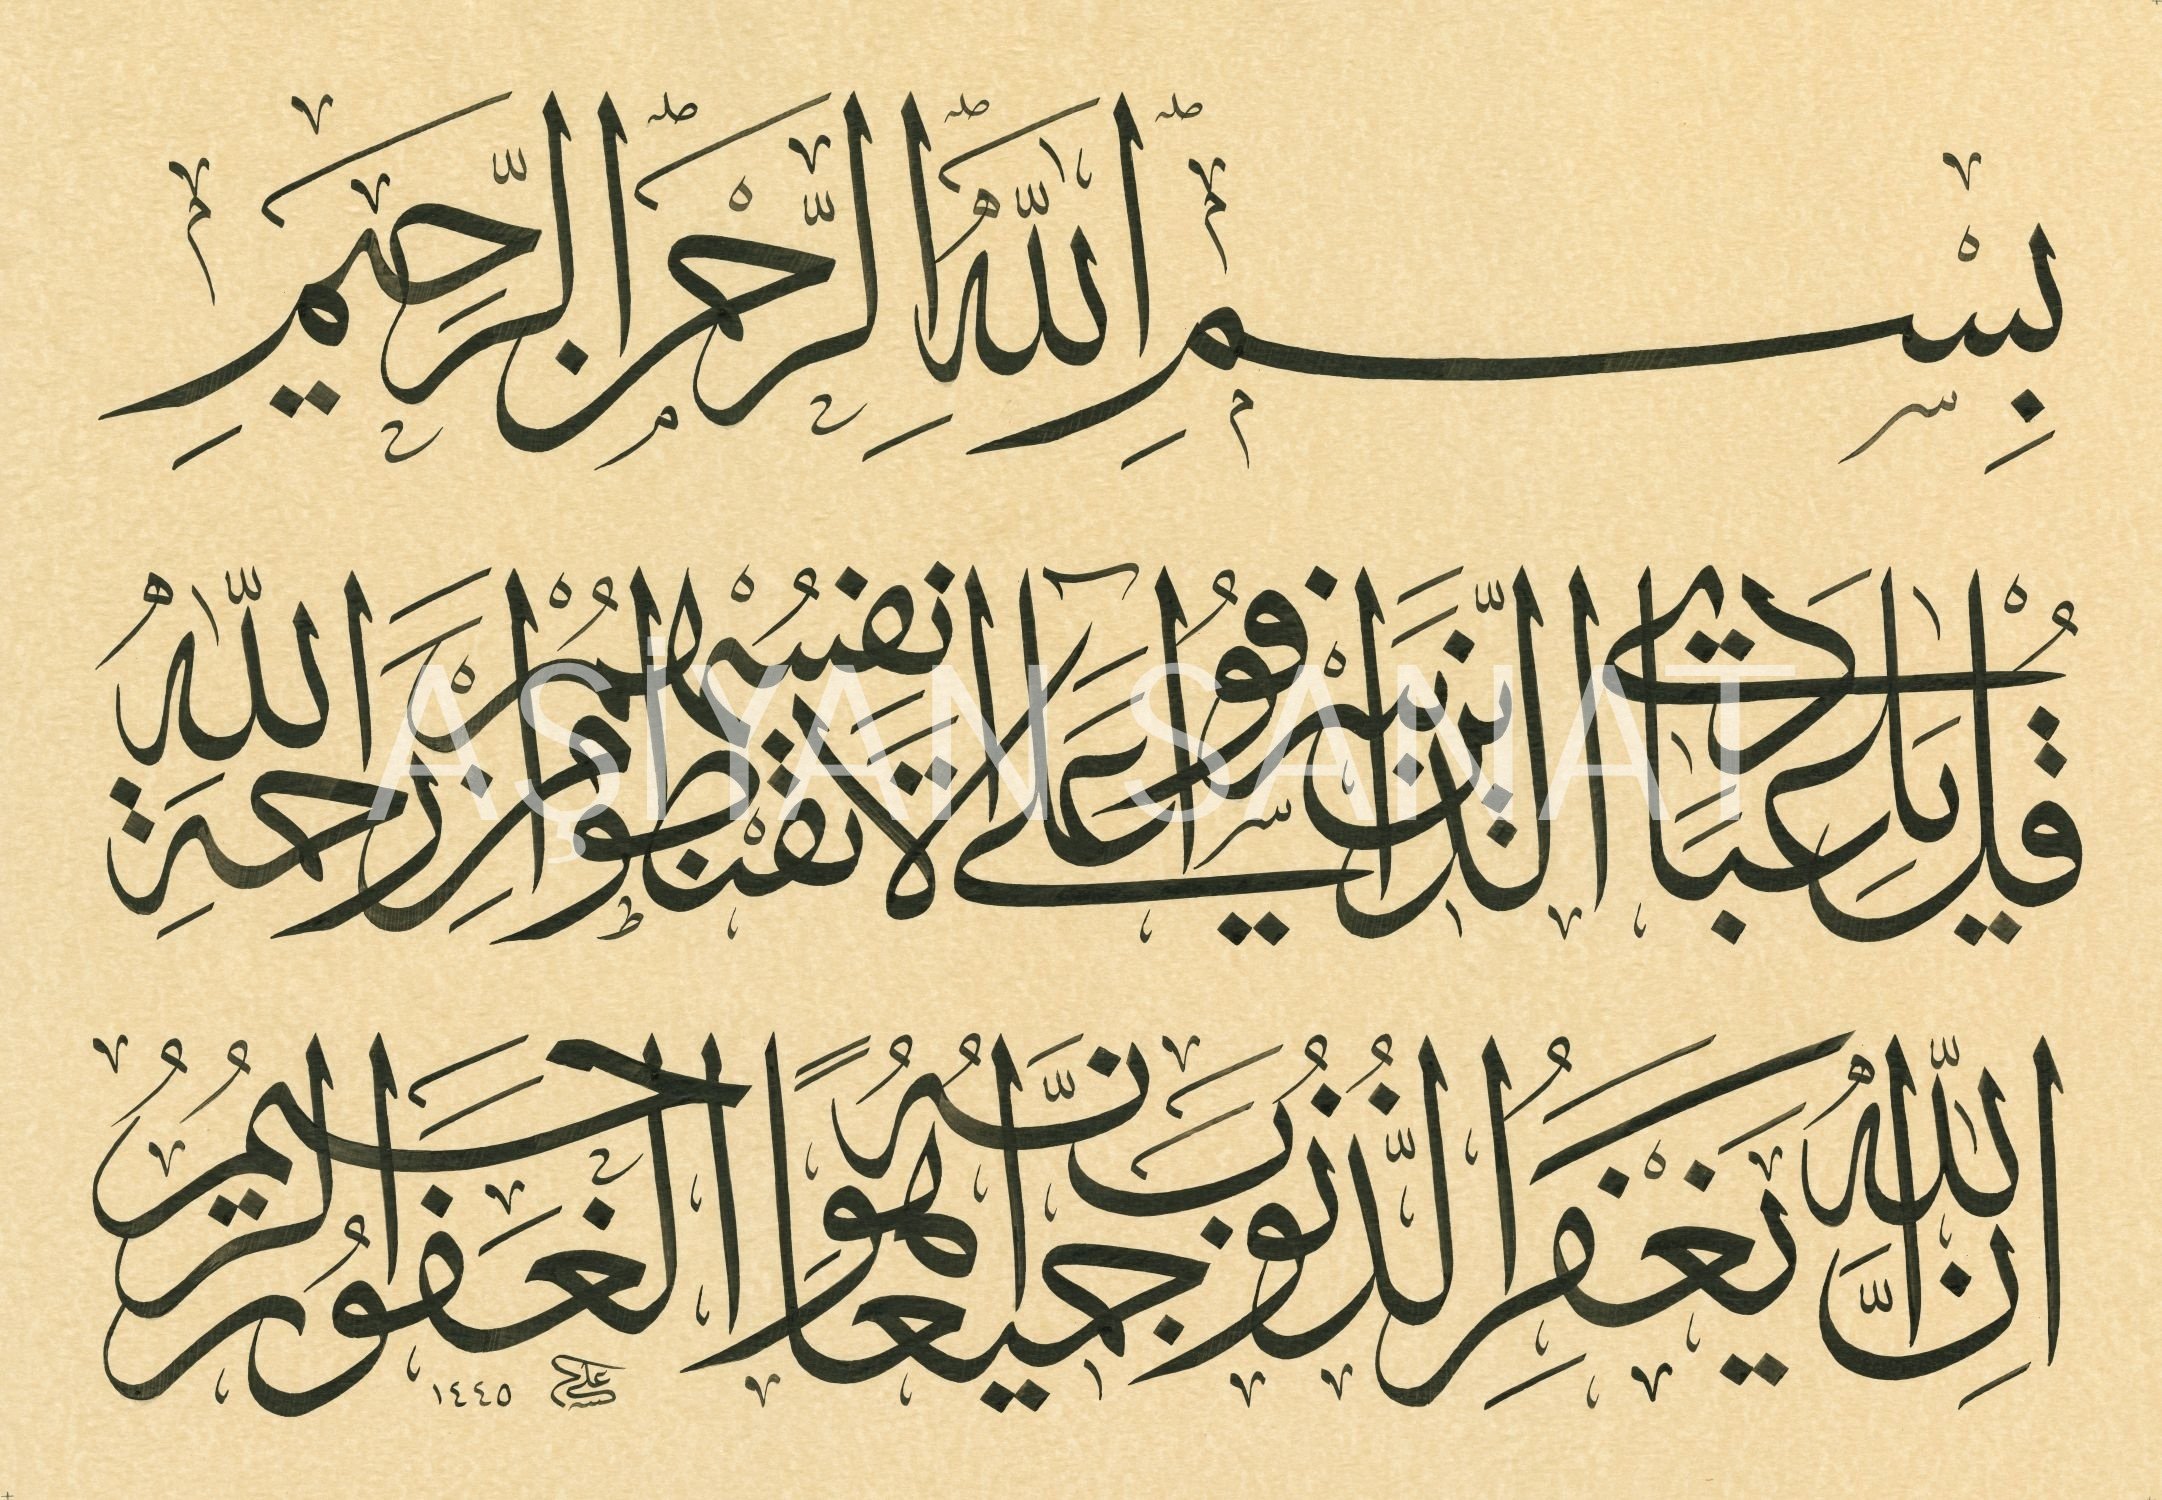 بِسْمِ اللّٰهِ الرَّحْمٰنِ الرَّحِيمِ
قُلْ يَا عِبَادِيَ الَّذِينَ اَسْرَفُوا عَلٰٓى اَنْفُسِهِمْ لَا تَقْنَطُوا مِنْ رَحْمَةِ اللّٰهِ
اِنَّ اللّٰهَ يَغْفِرُ الذُّنُوبَ جَمِيعًا اِنَّهُ هُوَ الْغَفُورُ الرَّحِيمُ
علي ١٤٤٥
AŞİYAN SANAT